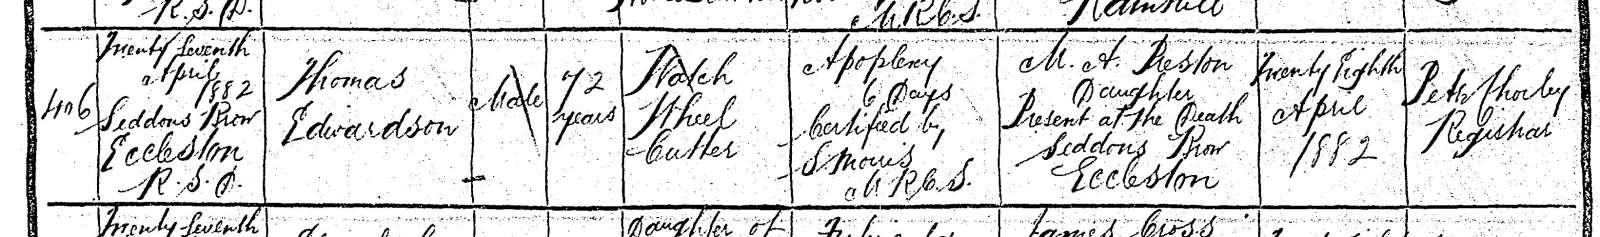 R. S. D.
M.R.C.S.
Rainhill
406
Twenty Seventh
April
1882
Seddons Brow
Eccleston
R. S. D.
Thomas
Edwardson
Male
72
years
Watch
Wheel
Cutter
Apoplexy
6 Days
Certified by
S. Morris
M.R.C.S.
M. A. Preston
Daughter
Present at the Death
Seddons Brow
Eccleston
Twenty Eighth
April
1882
Peter Chorley
Registrar
Twenty Seventh
Daughter of
James Cross